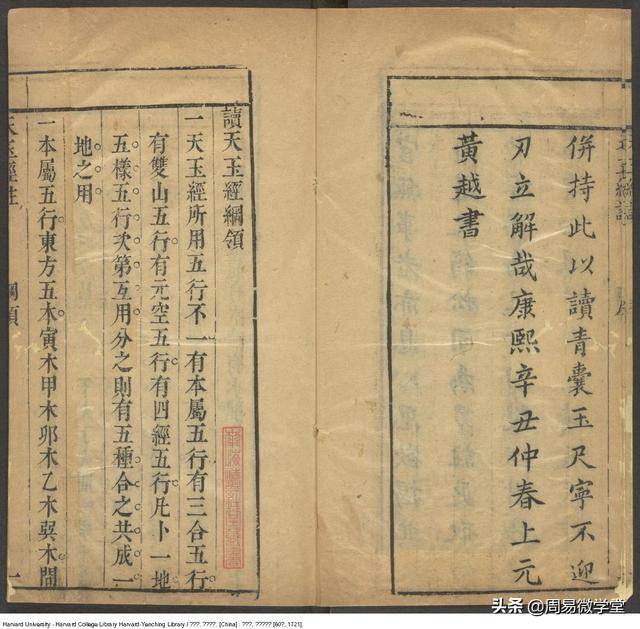 併持此以讀青囊玉尺寧不迎
刃立解哉康熙辛丑仲春上元
黃越書
讀天玉經綱領
一天玉經所用五行不一有本屬五行有三合五行
有雙山五行有元空五行有四經五行凡卜一地
五樣五行次第互用分之則有五種合之共成一
地之用
一本屬五行東方五木寅木甲木卯木乙木巽木間
天玉經註
綱領
一
Harvard University - Harvard College Library Harvard-Yenching Library / ???. ????. [China] : ???, ????? [60?, 1721].
头条 @周易微学堂